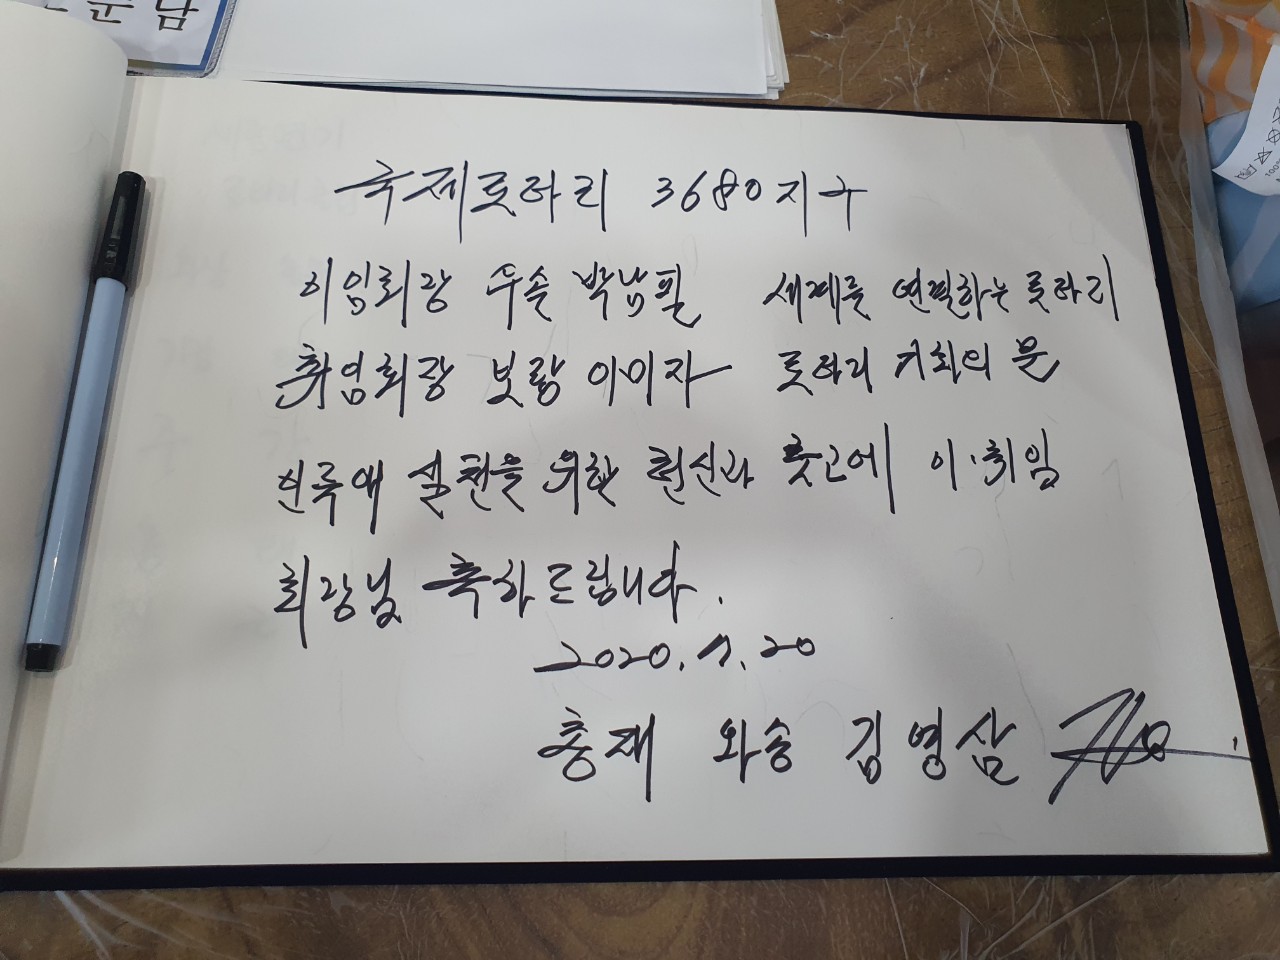 순남
국제로타리 3680지구
이임회장 우솔 박남필 세계를 연결하는 롯타리
취임회장 보람 이미자 롯타리 기회의 문
인류애 실천을 위한 헌신과 봉사에 이·취임
회장님 축하드립니다.
2020. 7. 20
총재 와송 김영삼
100%